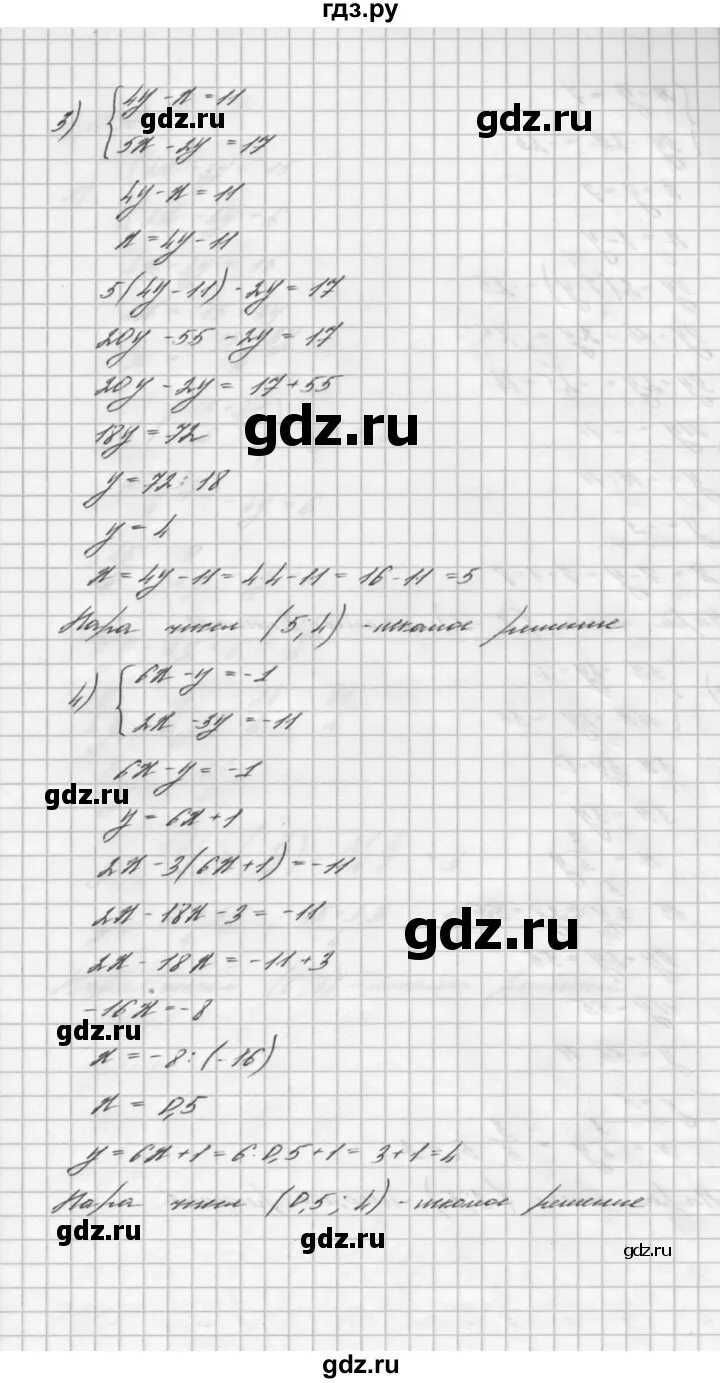 гдз.ру
3) { 4y - x = 11
5x - 2y = 17
gdz.ru
gdz.ru
4y - x = 11
x = 4y - 11
5(4y - 11) - 2y = 17
20y - 55 - 2y = 17
20y - 2y = 17 + 55
18y = 72
gdz.ru
y = 72 : 18
y = 4
x = 4y - 11 = 4·4 - 11 = 16 - 11 = 5
Пара чисел (5; 4) - искомое решение
4) { 6x - y = -1
2x - 3y = -11
6x - y = -1
gdz.ru
y = 6x + 1
2x - 3(6x + 1) = -11
2x - 18x - 3 = -11
gdz.ru
2x - 18x = -11 + 3
-16x = -8
gdz.ru
x = -8 : (-16)
x = 0,5
y = 6x + 1 = 6·0,5 + 1 = 3 + 1 = 4
Пара чисел (0,5; 4) - искомое решение
gdz.ru
gdz.ru
gdz.ru
gdz.ru